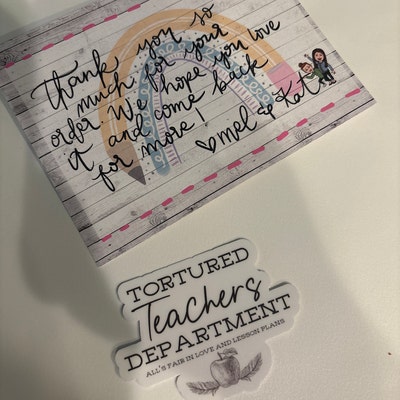 Thank you so
much for your
order. We hope you love
it and come back
for more!
♡mel & Kat
TORTURED
Teachers
DEPARTMENT
ALL'S FAIR IN LOVE AND LESSON PLANS